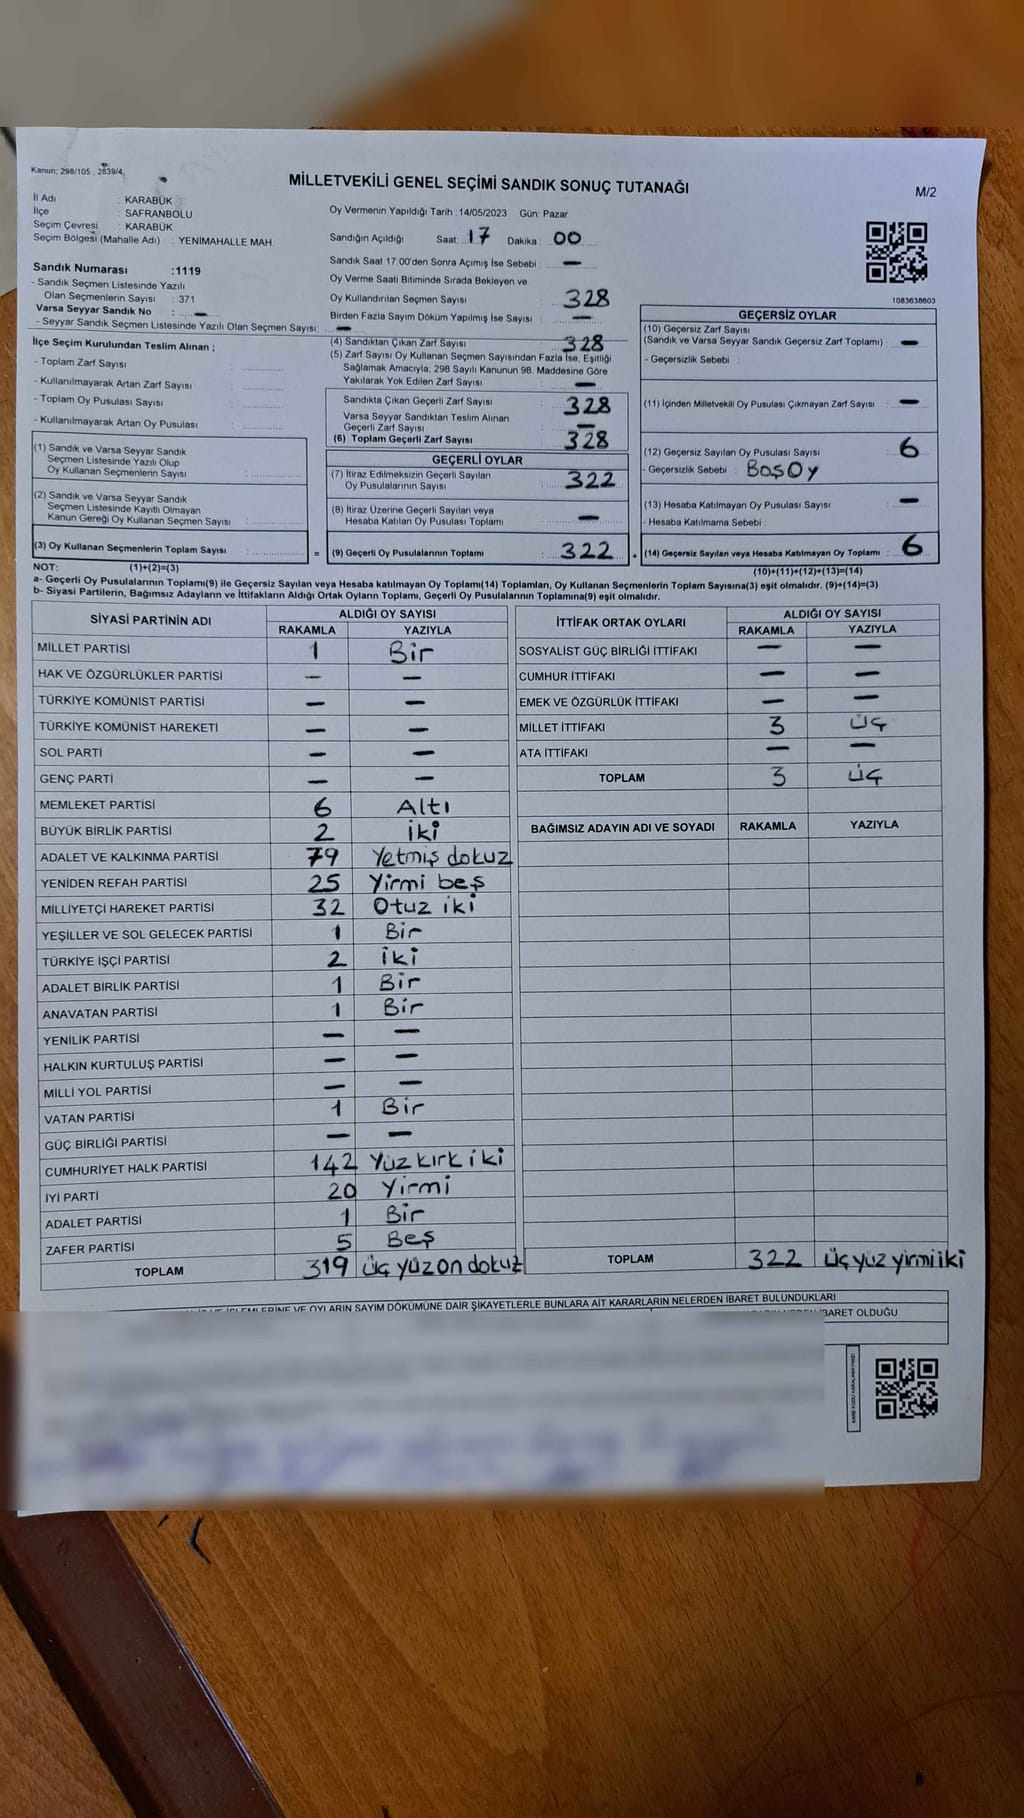 Kanun; 298/105 , 2839/4,
MİLLETVEKİLİ GENEL SEÇİMİ SANDIK SONUÇ TUTANAĞI
M/2
İl Adı : KARABÜK
İlçe : SAFRANBOLU
Seçim Çevresi : KARABÜK
Seçim Bölgesi (Mahalle Adı) : YENİMAHALLE MAH.
Sandık Numarası :1119
- Sandık Seçmen Listesinde Yazılı
Olan Seçmenlerin Sayısı : 371
Varsa Seyyar Sandık No : —
- Seyyar Sandık Seçmen Listesinde Yazılı Olan Seçmen Sayısı: —
İlçe Seçim Kurulundan Teslim Alınan ;
- Toplam Zarf Sayısı :
- Kullanılmayarak Artan Zarf Sayısı :
- Toplam Oy Pusulası Sayısı :
- Kullanılmayarak Artan Oy Pusulası :
(1) Sandık ve Varsa Seyyar Sandık
Seçmen Listesinde Yazılı Olup
Oy Kullanan Seçmenlerin Sayısı :
(2) Sandık ve Varsa Seyyar Sandık
Seçmen Listesinde Kayıtlı Olmayan
Kanun Gereği Oy Kullanan Seçmen Sayısı :
(3) Oy Kullanan Seçmenlerin Toplam Sayısı :
Oy Vermenin Yapıldığı Tarih :14/05/2023 Gün: Pazar
Sandığın Açıldığı Saat: 17 Dakika : 00
Sandık Saat 17:00'den Sonra Açımış İse Sebebi : —
Oy Verme Saati Bitiminde Sırada Bekleyen ve
Oy Kullandırılan Seçmen Sayısı : 328
Birden Fazla Sayım Döküm Yapılmış İse Sayısı : —
(4) Sandıktan Çıkan Zarf Sayısı : 328
(5) Zarf Sayısı Oy Kullanan Seçmen Sayısından Fazla İse, Eşitliği
Sağlamak Amacıyla; 298 Sayılı Kanunun 98. Maddesine Göre
Yakılarak Yok Edilen Zarf Sayısı : —
Sandıkta Çıkan Geçerli Zarf Sayısı : 328
Varsa Seyyar Sandıktan Teslim Alınan
Geçerli Zarf Sayısı : —
(6) Toplam Geçerli Zarf Sayısı : 328
GEÇERLİ OYLAR
(7) İtiraz Edilmeksizin Geçerli Sayılan
Oy Pusulalarının Sayısı : 322
(8) İtiraz Üzerine Geçerli Sayılan veya
Hesaba Katılan Oy Pusulası Toplamı : —
= (9) Geçerli Oy Pusulalarının Toplamı : 322
1083638603
GEÇERSİZ OYLAR
(10) Geçersiz Zarf Sayısı
(Sandık ve Varsa Seyyar Sandık Geçersiz Zarf Toplamı) : —
- Geçersizlik Sebebi :
(11) İçinden Milletvekili Oy Pusulası Çıkmayan Zarf Sayısı : —
(12) Geçersiz Sayılan Oy Pusulası Sayısı : 6
- Geçersizlik Sebebi : Boş Oy
(13) Hesaba Katılmayan Oy Pusulası Sayısı : —
- Hesaba Katılmama Sebebi :
+ (14) Geçersiz Sayılan veya Hesaba Katılmayan Oy Toplamı : 6
NOT: (1)+(2)=(3) (10)+(11)+(12)+(13)=(14)
a- Geçerli Oy Pusulalarının Toplamı(9) ile Geçersiz Sayılan veya Hesaba katılmayan Oy Toplamı(14) Toplamları, Oy Kullanan Seçmenlerin Toplam Sayısına(3) eşit olmalıdır. (9)+(14)=(3)
b- Siyasi Partilerin, Bağımsız Adayların ve İttifakların Aldığı Ortak Oyların Toplamı, Geçerli Oy Pusulalarının Toplamına(9) eşit olmalıdır.
SİYASİ PARTİNİN ADI ALDIĞI OY SAYISI
RAKAMLA YAZIYLA
MİLLET PARTİSİ 1 Bir
HAK VE ÖZGÜRLÜKLER PARTİSİ — —
TÜRKİYE KOMÜNİST PARTİSİ — —
TÜRKİYE KOMÜNİST HAREKETİ — —
SOL PARTİ — —
GENÇ PARTİ — —
MEMLEKET PARTİSİ 6 Altı
BÜYÜK BİRLİK PARTİSİ 2 İki
ADALET VE KALKINMA PARTİSİ 79 Yetmiş dokuz
YENİDEN REFAH PARTİSİ 25 Yirmi beş
MİLLİYETÇİ HAREKET PARTİSİ 32 Otuz iki
YEŞİLLER VE SOL GELECEK PARTİSİ 1 Bir
TÜRKİYE İŞÇİ PARTİSİ 2 İki
ADALET BİRLİK PARTİSİ 1 Bir
ANAVATAN PARTİSİ 1 Bir
YENİLİK PARTİSİ — —
HALKIN KURTULUŞ PARTİSİ — —
MİLLİ YOL PARTİSİ — —
VATAN PARTİSİ 1 Bir
GÜÇ BİRLİĞİ PARTİSİ — —
CUMHURİYET HALK PARTİSİ 142 Yüz kırk iki
İYİ PARTİ 20 Yirmi
ADALET PARTİSİ 1 Bir
ZAFER PARTİSİ 5 Beş
TOPLAM 319 üç yüz on dokuz
İTTİFAK ORTAK OYLARI ALDIĞI OY SAYISI
RAKAMLA YAZIYLA
SOSYALİST GÜÇ BİRLİĞİ İTTİFAKI — —
CUMHUR İTTİFAKI — —
EMEK VE ÖZGÜRLÜK İTTİFAKI — —
MİLLET İTTİFAKI 3 üç
ATA İTTİFAKI — —
TOPLAM 3 üç
BAĞIMSIZ ADAYIN ADI VE SOYADI RAKAMLA YAZIYLA
TOPLAM 322 üç yüz yirmi iki
VE OYLARIN SAYIM DÖKÜMÜNE DAİR ŞİKAYETLERLE BUNLARA AİT KARARLARIN NELERDEN İBARET BULUNDUKLARI
İBARET OLDUĞU